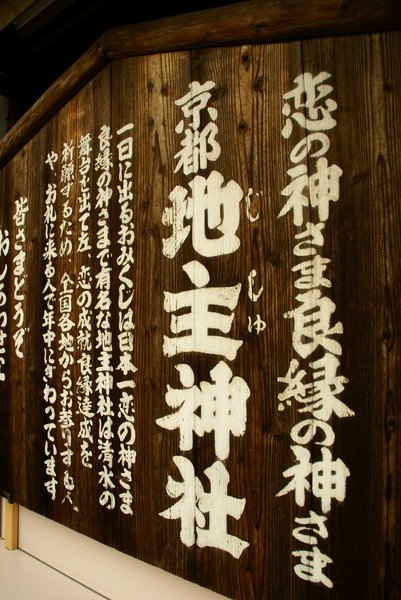 恋の神さま良縁の神さま
京都地主神社
じしゅ
一日に出るおみくじは日本一恋の神さま
良縁の神さまで有名な地主神社は清水の
舞台を出て左、恋の成就良縁達成を
祈願するため全国各地からお参りする人
や、お札に来る人で年中にぎわっています
皆さまどうぞ
おしあわせに